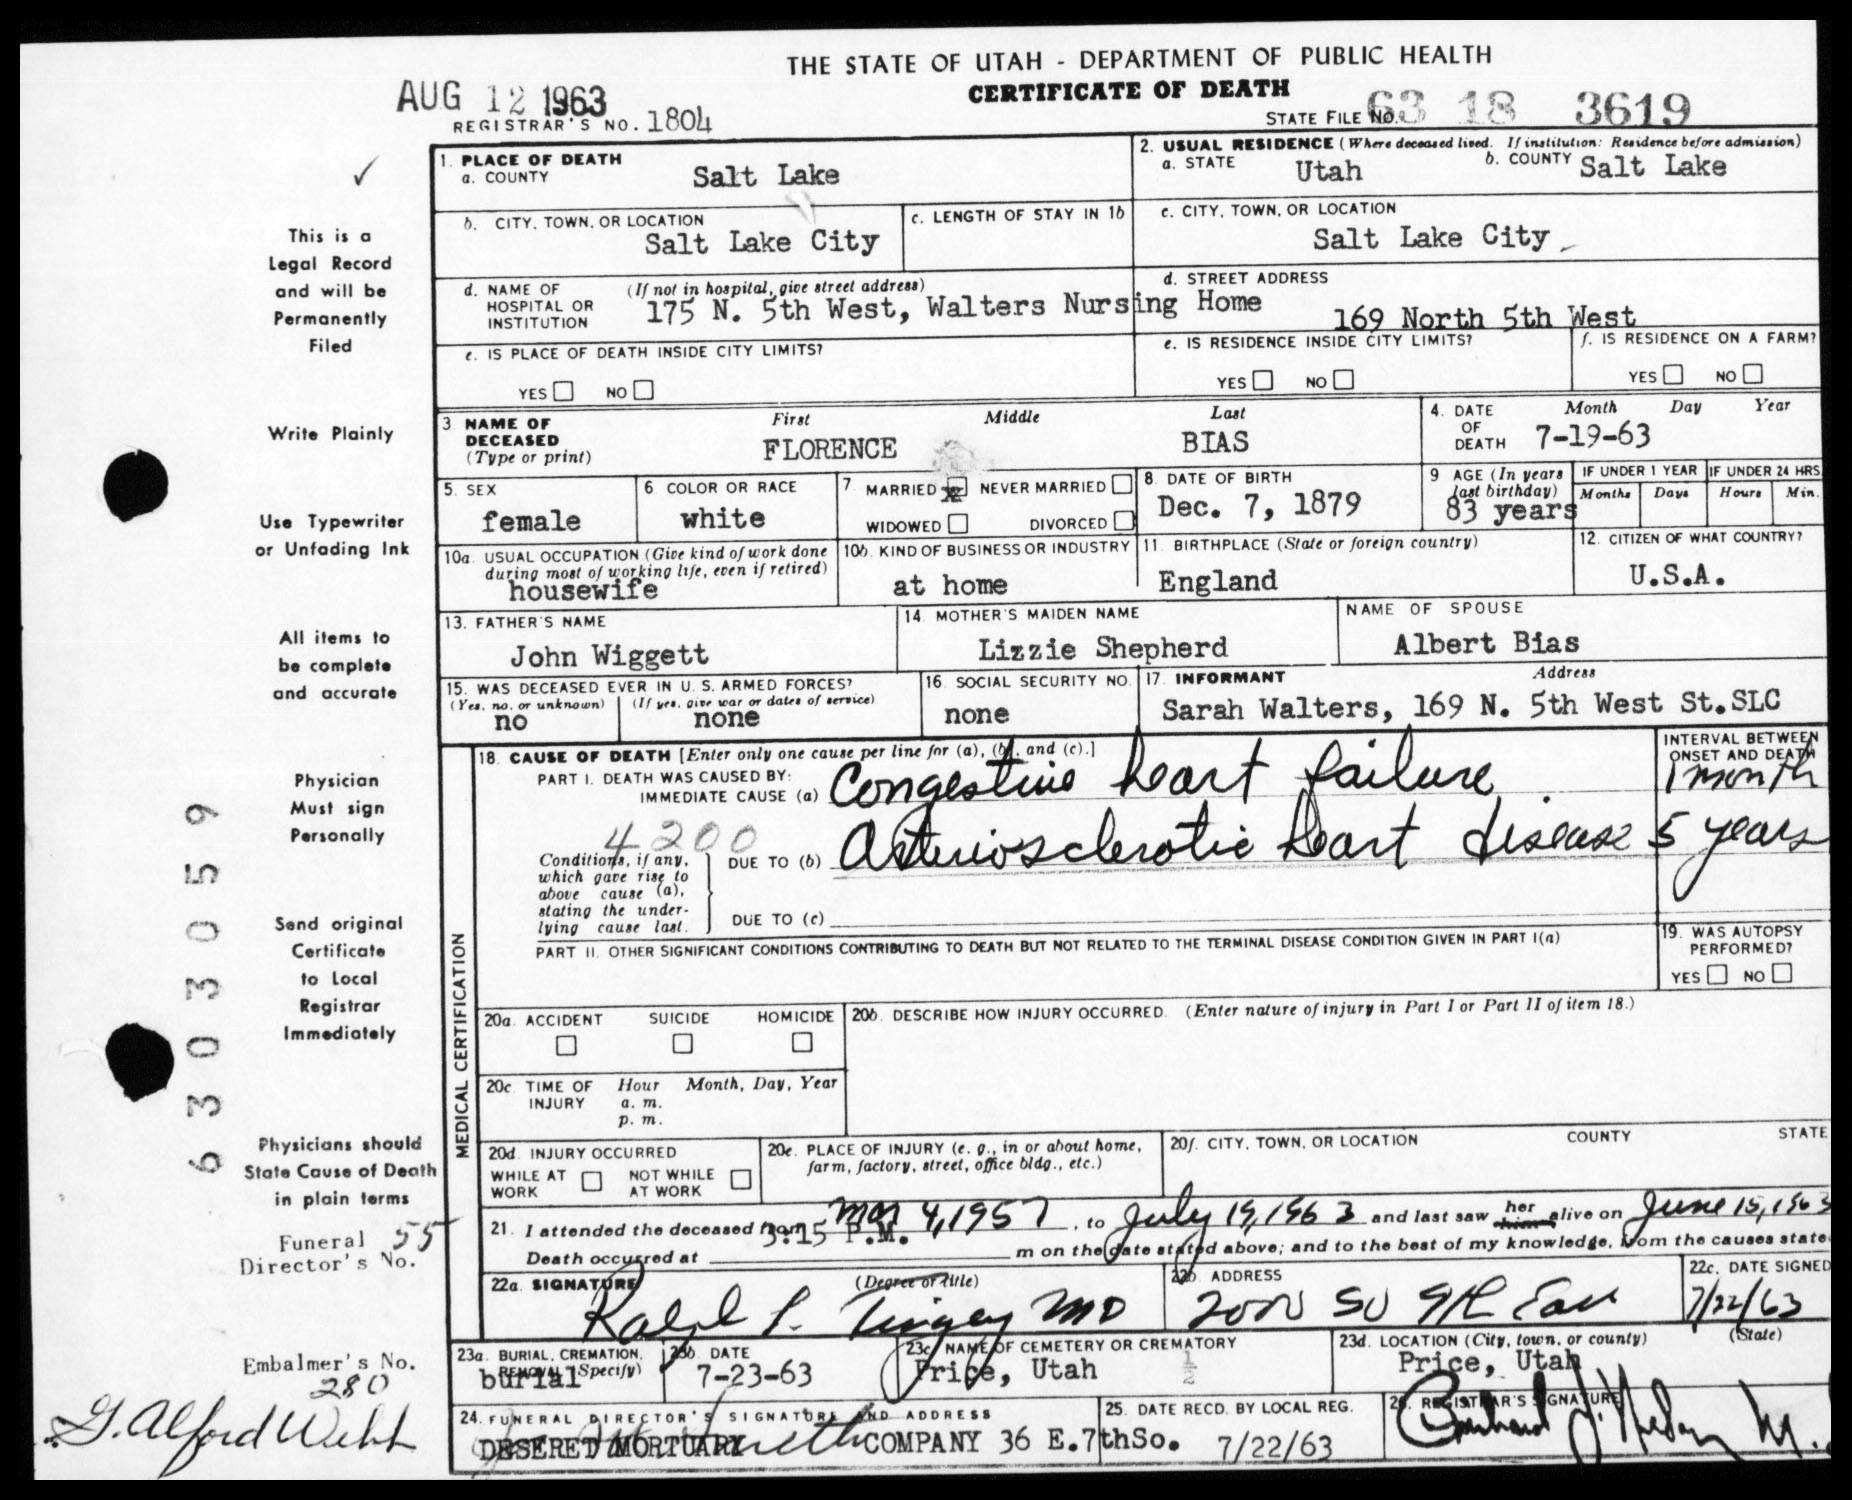 THE STATE OF UTAH - DEPARTMENT OF PUBLIC HEALTH
AUG 12 1963
CERTIFICATE OF DEATH
REGISTRAR'S NO. 1804
STATE FILE NO. 63 18 3619
1. PLACE OF DEATH
a. COUNTY Salt Lake
2. USUAL RESIDENCE (Where deceased lived. If institution: Residence before admission)
a. STATE Utah b. COUNTY Salt Lake
b. CITY, TOWN, OR LOCATION
Salt Lake City
c. LENGTH OF STAY IN 1b
c. CITY, TOWN, OR LOCATION
Salt Lake City
d. NAME OF HOSPITAL OR INSTITUTION (If not in hospital, give street address)
175 N. 5th West, Walters Nursing Home
d. STREET ADDRESS
169 North 5th West
e. IS PLACE OF DEATH INSIDE CITY LIMITS?
YES NO
e. IS RESIDENCE INSIDE CITY LIMITS?
YES NO
f. IS RESIDENCE ON A FARM?
YES NO
3 NAME OF DECEASED (Type or print)
First Middle Last
FLORENCE BIAS
4. DATE OF DEATH Month Day Year
7-19-63
5. SEX
female
6 COLOR OR RACE
white
7. MARRIED NEVER MARRIED
WIDOWED DIVORCED
8. DATE OF BIRTH
Dec. 7, 1879
9 AGE (In years last birthday)
83 years
IF UNDER 1 YEAR
Months Days
IF UNDER 24 HRS.
Hours Min.
10a. USUAL OCCUPATION (Give kind of work done
during most of working life, even if retired)
housewife
10b. KIND OF BUSINESS OR INDUSTRY
at home
11. BIRTHPLACE (State or foreign country)
England
12. CITIZEN OF WHAT COUNTRY?
U.S.A.
13. FATHER'S NAME
John Wiggett
14. MOTHER'S MAIDEN NAME
Lizzie Shepherd
NAME OF SPOUSE
Albert Bias
15. WAS DECEASED EVER IN U. S. ARMED FORCES?
(Yes, no, or unknown) (If yes, give war or dates of service)
no none
16. SOCIAL SECURITY NO.
none
17. INFORMANT Address
Sarah Walters, 169 N. 5th West St. SLC
MEDICAL CERTIFICATION
18. CAUSE OF DEATH [Enter only one cause per line for (a), (b), and (c).]
INTERVAL BETWEEN ONSET AND DEATH
PART I. DEATH WAS CAUSED BY:
IMMEDIATE CAUSE (a) Congestive heart failure 1 month
4200
Conditions, if any,
which gave rise to
above cause (a),
stating the under-
lying cause last.
DUE TO (b) Arteriosclerotic heart disease 5 years
DUE TO (c)
PART II. OTHER SIGNIFICANT CONDITIONS CONTRIBUTING TO DEATH BUT NOT RELATED TO THE TERMINAL DISEASE CONDITION GIVEN IN PART I(a)
19. WAS AUTOPSY PERFORMED?
YES NO
20a. ACCIDENT SUICIDE HOMICIDE
20b. DESCRIBE HOW INJURY OCCURRED. (Enter nature of injury in Part I or Part II of item 18.)
20c. TIME OF INJURY Hour Month, Day, Year
a. m.
p. m.
20d. INJURY OCCURRED
WHILE AT WORK NOT WHILE AT WORK
20e. PLACE OF INJURY (e. g., in or about home,
farm, factory, street, office bldg., etc.)
20f. CITY, TOWN, OR LOCATION COUNTY STATE
21. I attended the deceased from Mar 4, 1957, to July 19, 1963 and last saw her him alive on June 15, 1963
3:15 P.M.
Death occurred at m on the date stated above; and to the best of my knowledge, from the causes state
22a. SIGNATURE (Degree or title)
Ralph L. Tingey MD
22b. ADDRESS
22c. DATE SIGNED
7/22/63
23a. BURIAL, CREMATION, REMOVAL (Specify)
burial
23b. DATE
7-23-63
23c. NAME OF CEMETERY OR CREMATORY
Price, Utah 1/2
23d. LOCATION (City, town, or county) (State)
Price, Utah
24. FUNERAL DIRECTOR'S SIGNATURE AND ADDRESS
DESERET MORTUARY COMPANY 36 E.7thSo.
25. DATE RECD. BY LOCAL REG.
7/22/63
26. REGISTRAR'S SIGNATURE
✓
This is a
Legal Record
and will be
Permanently
Filed
Write Plainly
Use Typewriter
or Unfading Ink
All items to
be complete
and accurate
Physician
Must sign
Personally
Send original
Certificate
to Local
Registrar
Immediately
Physicians should
State Cause of Death
in plain terms
Funeral Director's No. 55
Embalmer's No.
280
G. Alford Webb
6303059